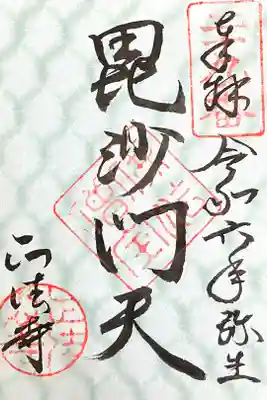 奉拝
令和六年弥生
毘沙門天
正法寺